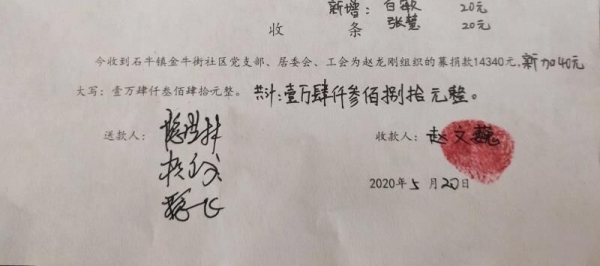 新增：白敏 20元
张慧 20元
收 条
今收到石牛镇金牛街社区党支部、居委会、工会为赵龙刚组织的募捐款14340元,新加40元
大写：壹万肆仟叁佰肆拾元整。共计：壹万肆仟叁佰捌拾元整。
送款人：
收款人：赵文巍
2020年5月20日